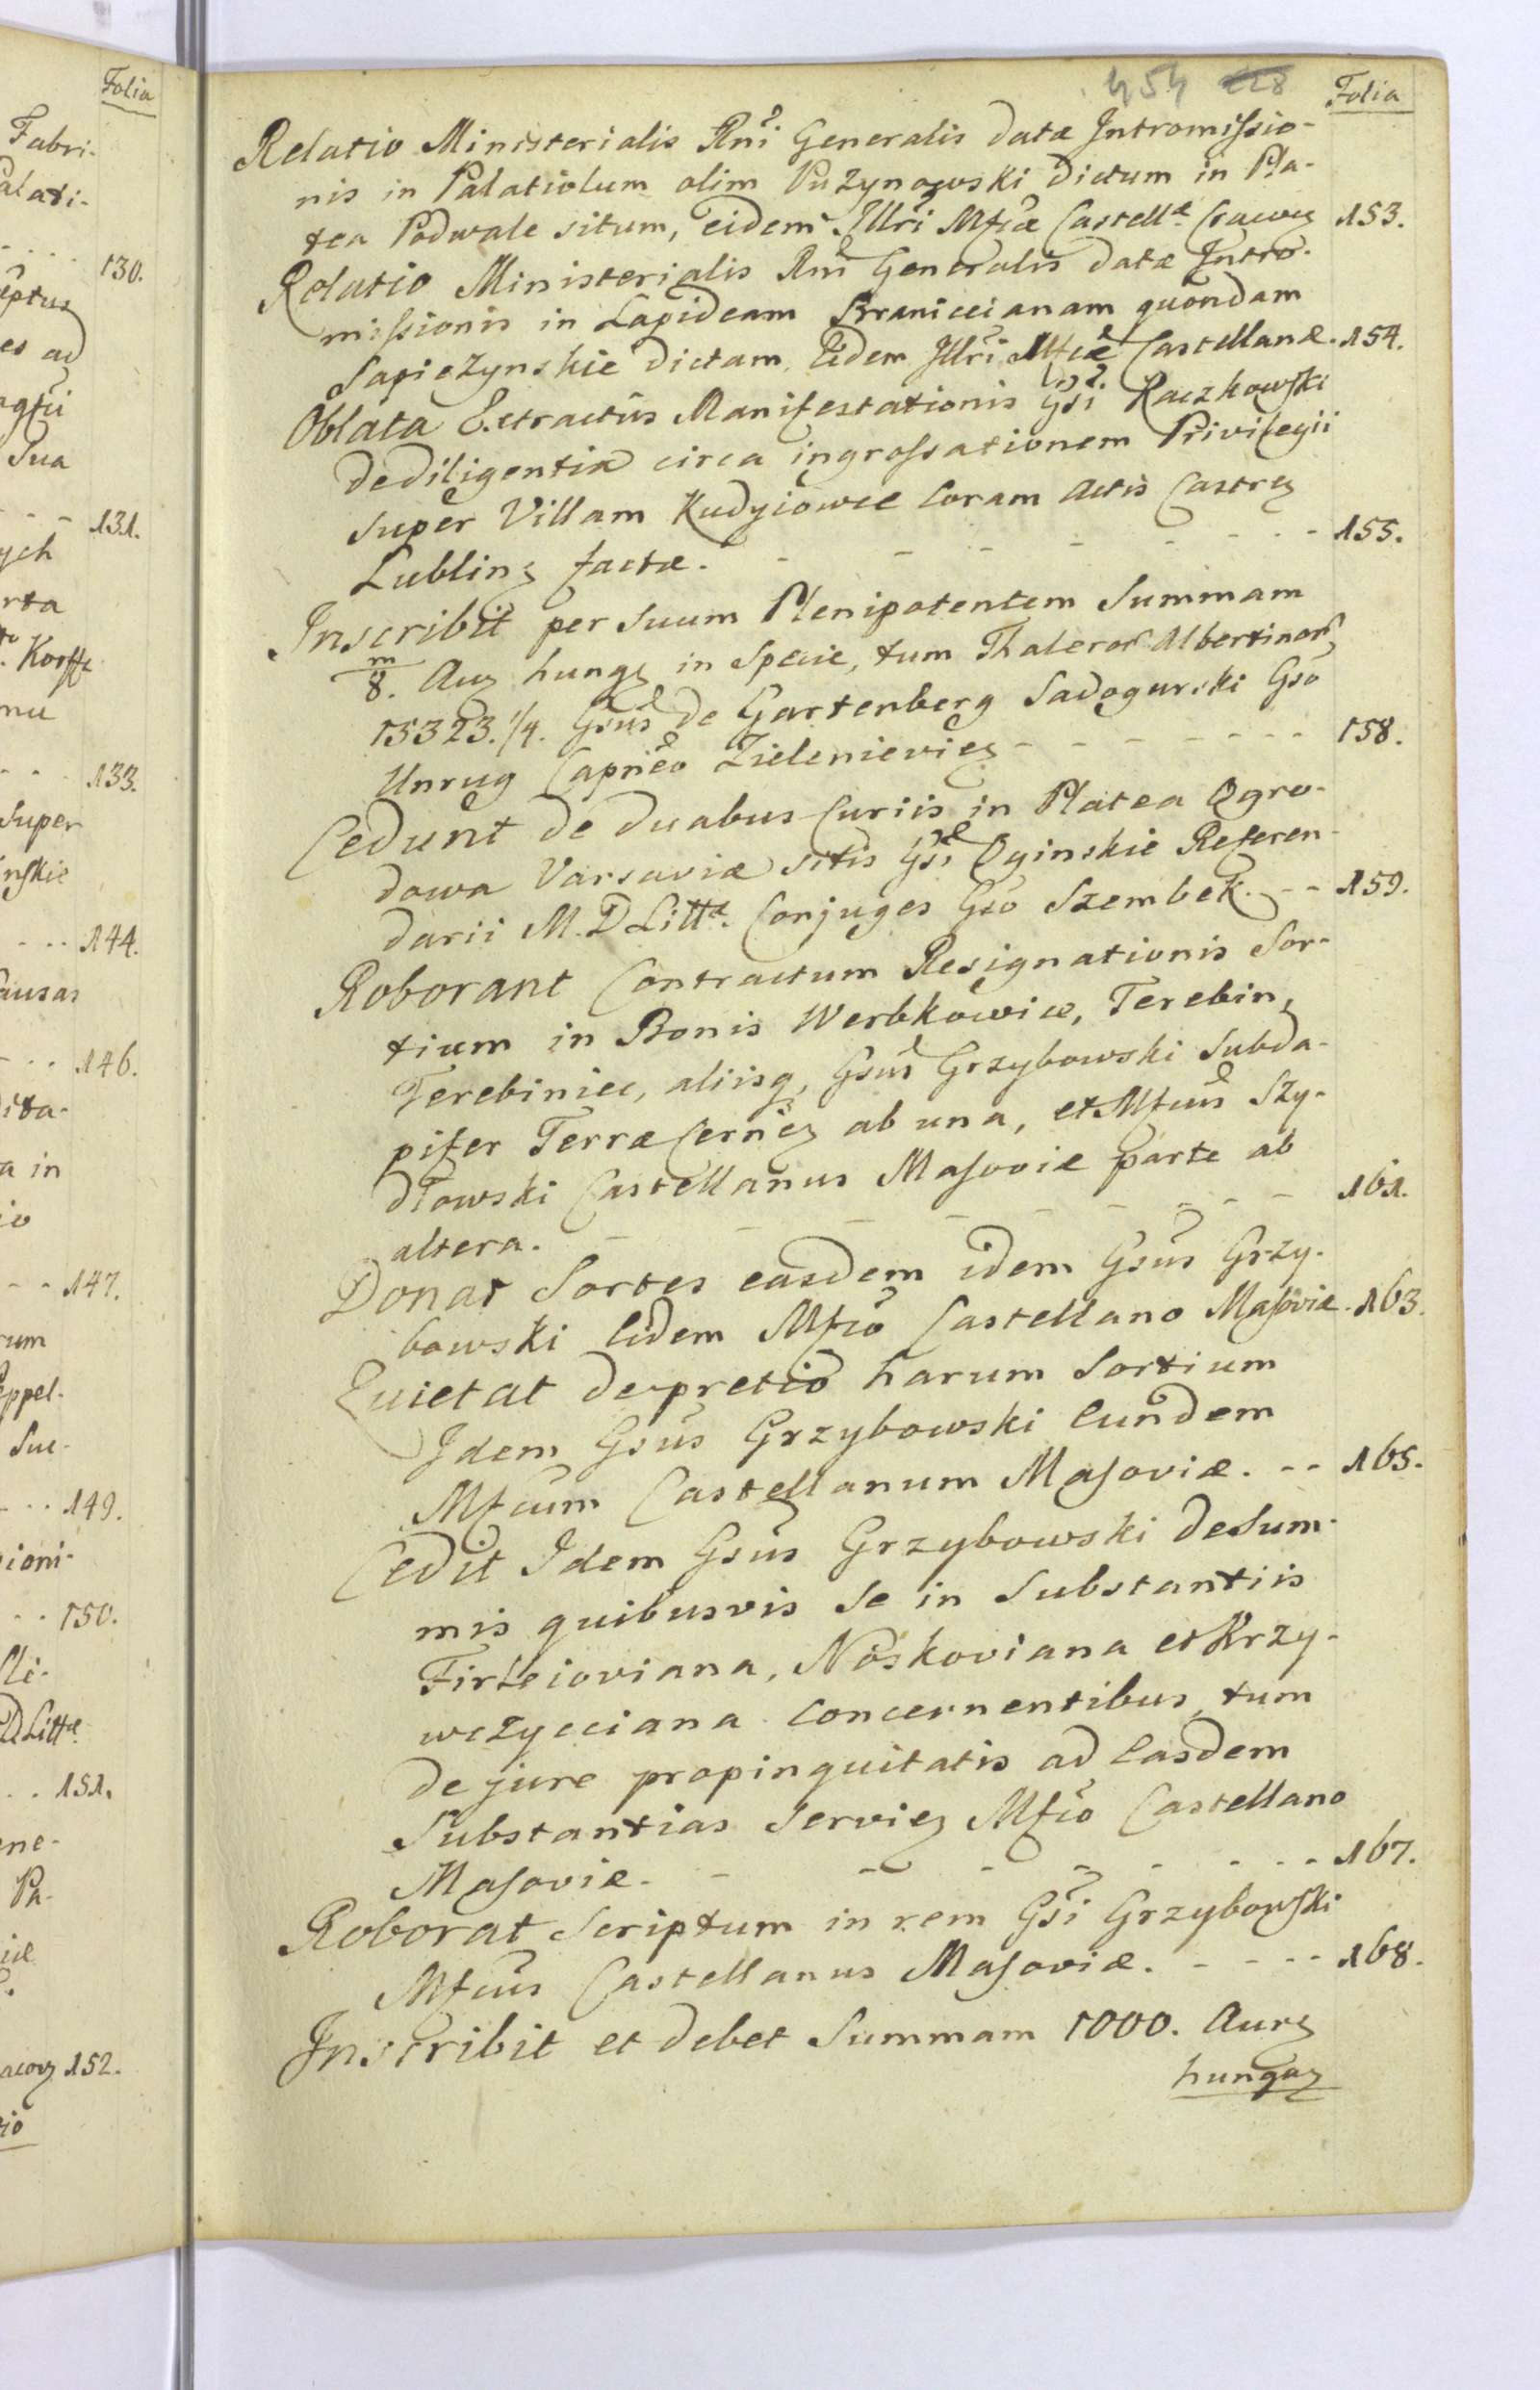 Folia
Fabri-
Palati-
130.
eptus
es ad
agfui
Sua
131.
ych
rta
Korffe
nu
133.
Super
inskie
144.
Causas
146.
dita-
a in
io
147.
rum
Appel-
Suc-
149.
sioni-
150.
Pli-
D Littæ
151.
ene-
Pa-
152.
454 228
Folia
Relatio Ministerialis Rni Generalis datæ Intromissio-
nis in Palatiolum olim Puzynowski dictum in Pla-
tea Podwale situm, eidem Illri Mfcæ Castellæ Cracov 153.
Relatio Ministerialis Rni Generalis datæ Intro-
missionis in Lapideam Braniccianam quondam
Sapiezynskie dictam, Eidem Illri Mfcæ Castellanæ. 154.
Oblata Extractus Manifestationis Gsi Raczkowski
de diligentia circa ingrossationem Privilegii
super Villam Kudyiowce coram Actis Castren
Lublinen factæ. - - - - - - - 155.
Inscribit per suum Plenipotentem Summam
m/8. Aur hung in Specie, tum Thaleror Albertinor,
15323.1/4. Gsus de Gartenberg Sadogurski Gso
Unrug Capneo Zielenievien - - - - - - 158.
Cedunt de duabus Curiis in Platea Ogro-
dowa Varsaviæ sitis Gsi Oginskie Referen-
darii M.D Littæ. Conjuges Gso Szembek. - - 159.
Roborant Contractum Resignationis Sor-
tium in Bonis Werbkowice, Terebin,
Terebiniec, aliisq, Gsus Grzybowski Subda-
pifer Terræ Cernen ab una, et Mfcus Szy-
dłowski Castellanus Masoviæ parte ab
altera. - - - - - - - - 161.
Donat Sortes easdem idem Gsus Grzy-
bowski Eidem Mfco Castellano Masoviæ. 163.
Quietat de pretio harum Sortium
Idem Gsus Grzybowski Eundem
Mfcum Castellanum Masoviæ. - - 165.
Cedit Idem Gsus Grzybowski de Sum-
mis quibusvis se in Substantiis
Firleioviana, Noskoviana et Krzy-
wczycciana concernentibus, tum
de jure propinquitatis ad Easdem
Substantias servien Mfco Castellano
Masoviæ. - - - - - - - 167.
Roborat Scriptum in rem Gsi Grzybowski
Mfcus Castellanus Masoviæ. - - - - 168.
Inscribit et debet Summam 1000. Aur
hungar